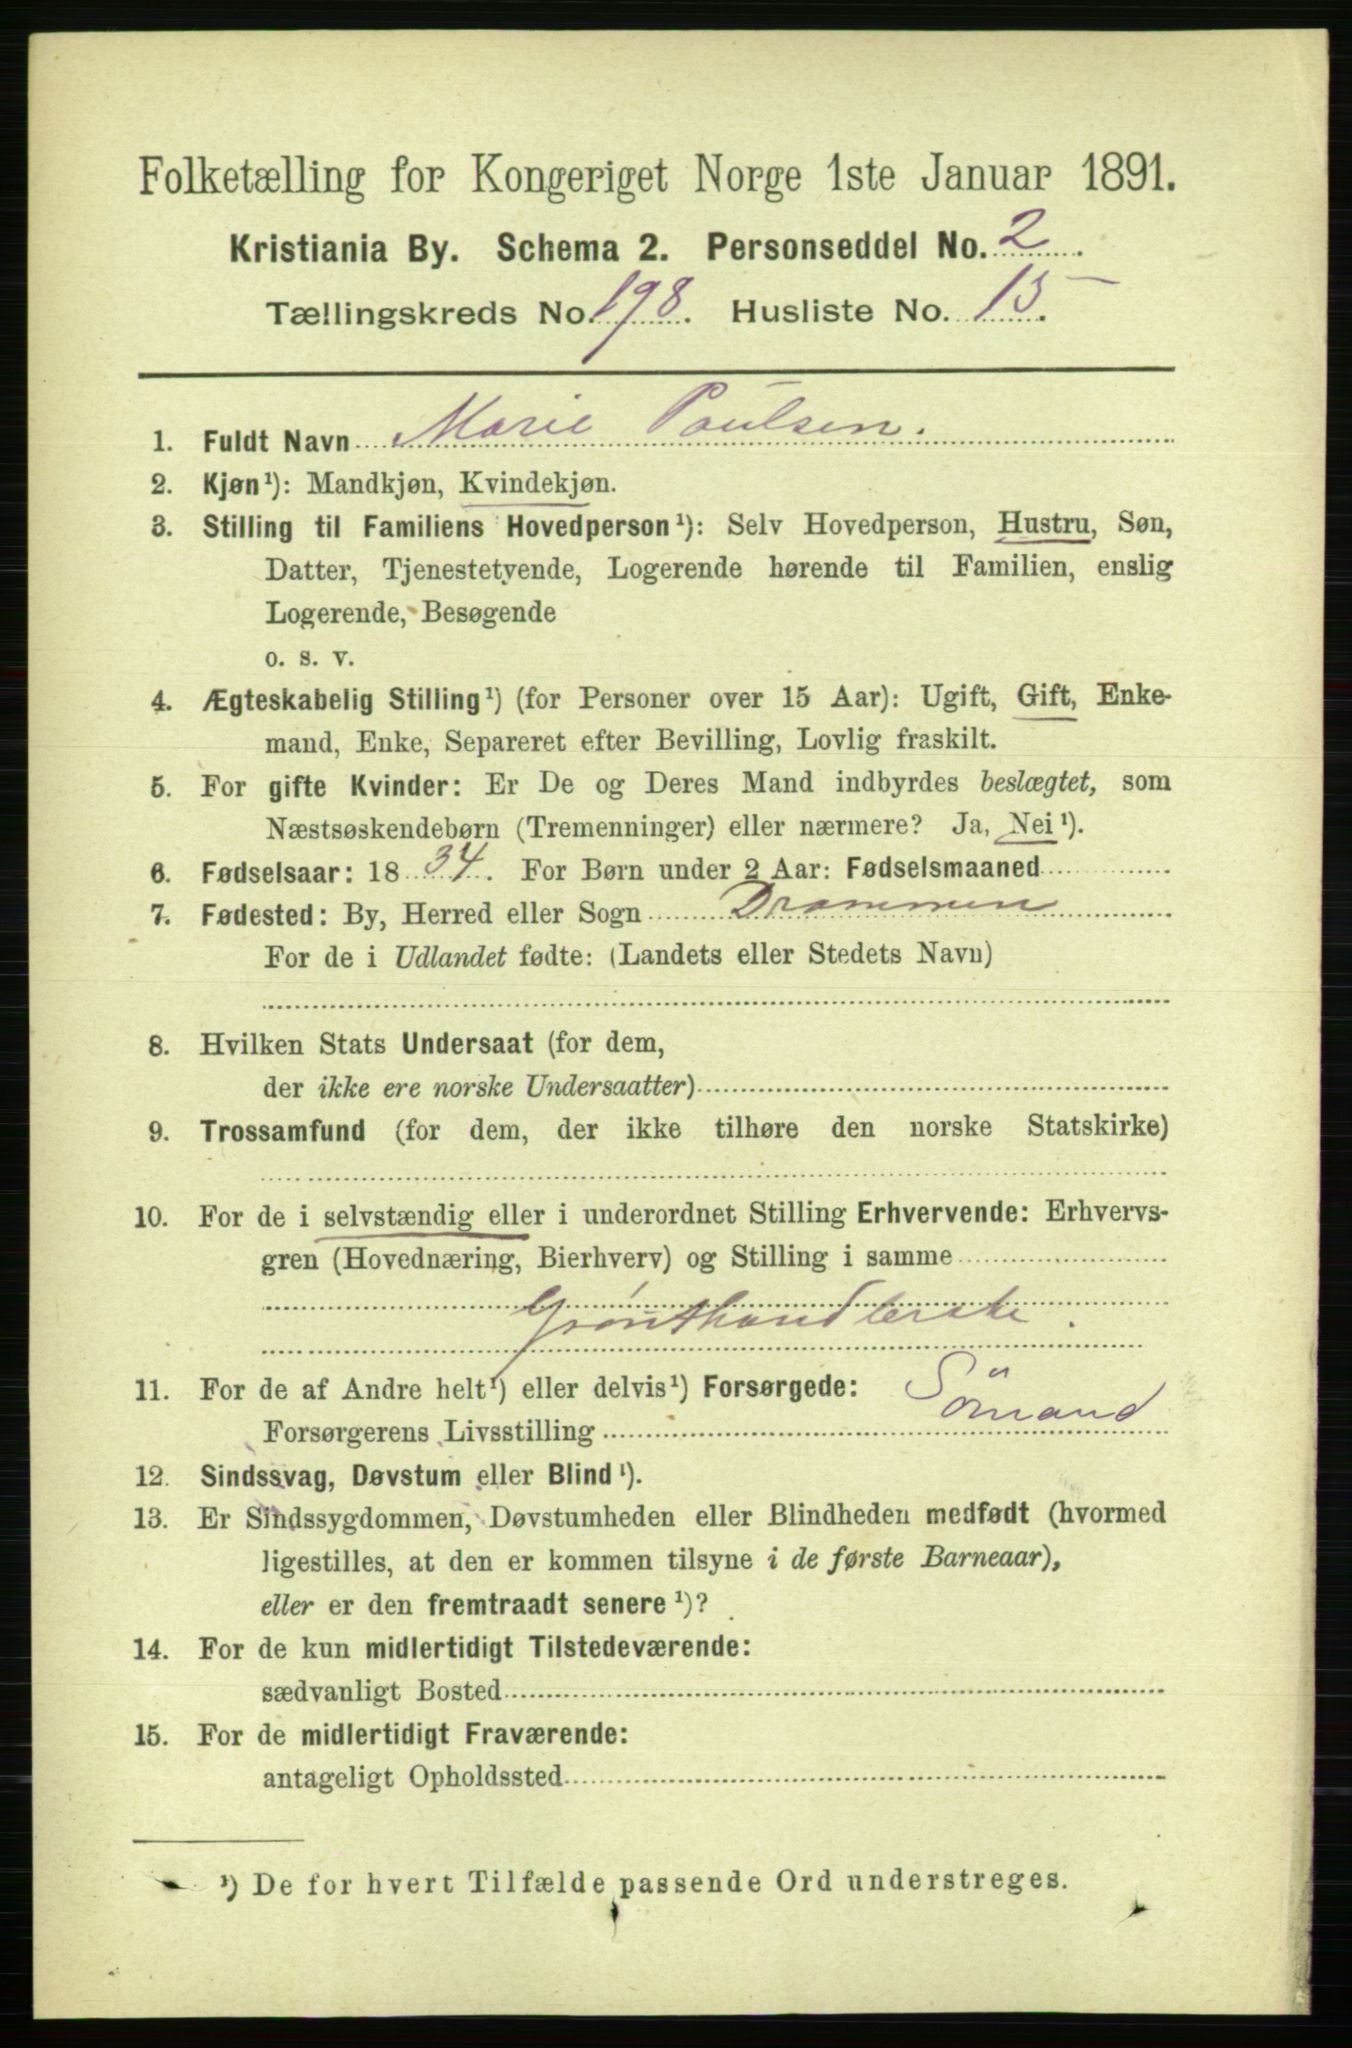 Folketælling for Kongeriget Norge 1ste Januar 1891.
Kristiania By. Schema 2. Personseddel No. 2.
Tællingskreds No. 198. Husliste No. 15.
1. Fuldt Navn Marie Paulsen.
2. Kjøn¹): Mandkjøn, Kvindekjøn.
3. Stilling til Familiens Hovedperson¹): Selv Hovedperson, Hustru, Søn,
Datter, Tjenestetyende, Logerende hørende til Familien, enslig
Logerende, Besøgende
o. s. v.
4. Ægteskabelig Stilling¹) (for Personer over 15 Aar): Ugift, Gift, Enke-
mand, Enke, Separeret efter Bevilling, Lovlig fraskilt.
5. For gifte Kvinder: Er De og Deres Mand indbyrdes beslægtet, som
Næstsøskendebørn (Tremenninger) eller nærmere? Ja, Nei¹).
6. Fødselsaar: 18 34. For Børn under 2 Aar: Fødselsmaaned
7. Fødested: By, Herred eller Sogn Drammen
For de i Udlandet fødte: (Landets eller Stedets Navn)
8. Hvilken Stats Undersaat (for dem,
der ikke ere norske Undersaatter)
9. Trossamfund (for dem, der ikke tilhøre den norske Statskirke)
10. For de i selvstændig eller i underordnet Stilling Erhvervende: Erhvervs-
gren (Hovednæring, Bierhverv) og Stilling i samme
Grønthandlerske.
11. For de af Andre helt¹) eller delvis¹) Forsørgede:
Forsørgerens Livsstilling Sömand
12. Sindssvag, Døvstum eller Blind¹).
13. Er Sindssygdommen, Døvstumheden eller Blindheden medfødt (hvormed
ligestilles, at den er kommen tilsyne i de første Barneaar),
eller er den fremtraadt senere¹)?
14. For de kun midlertidigt Tilstedeværende:
sædvanligt Bosted
15. For de midlertidigt Fraværende:
antageligt Opholdssted
¹) De for hvert Tilfælde passende Ord understreges.